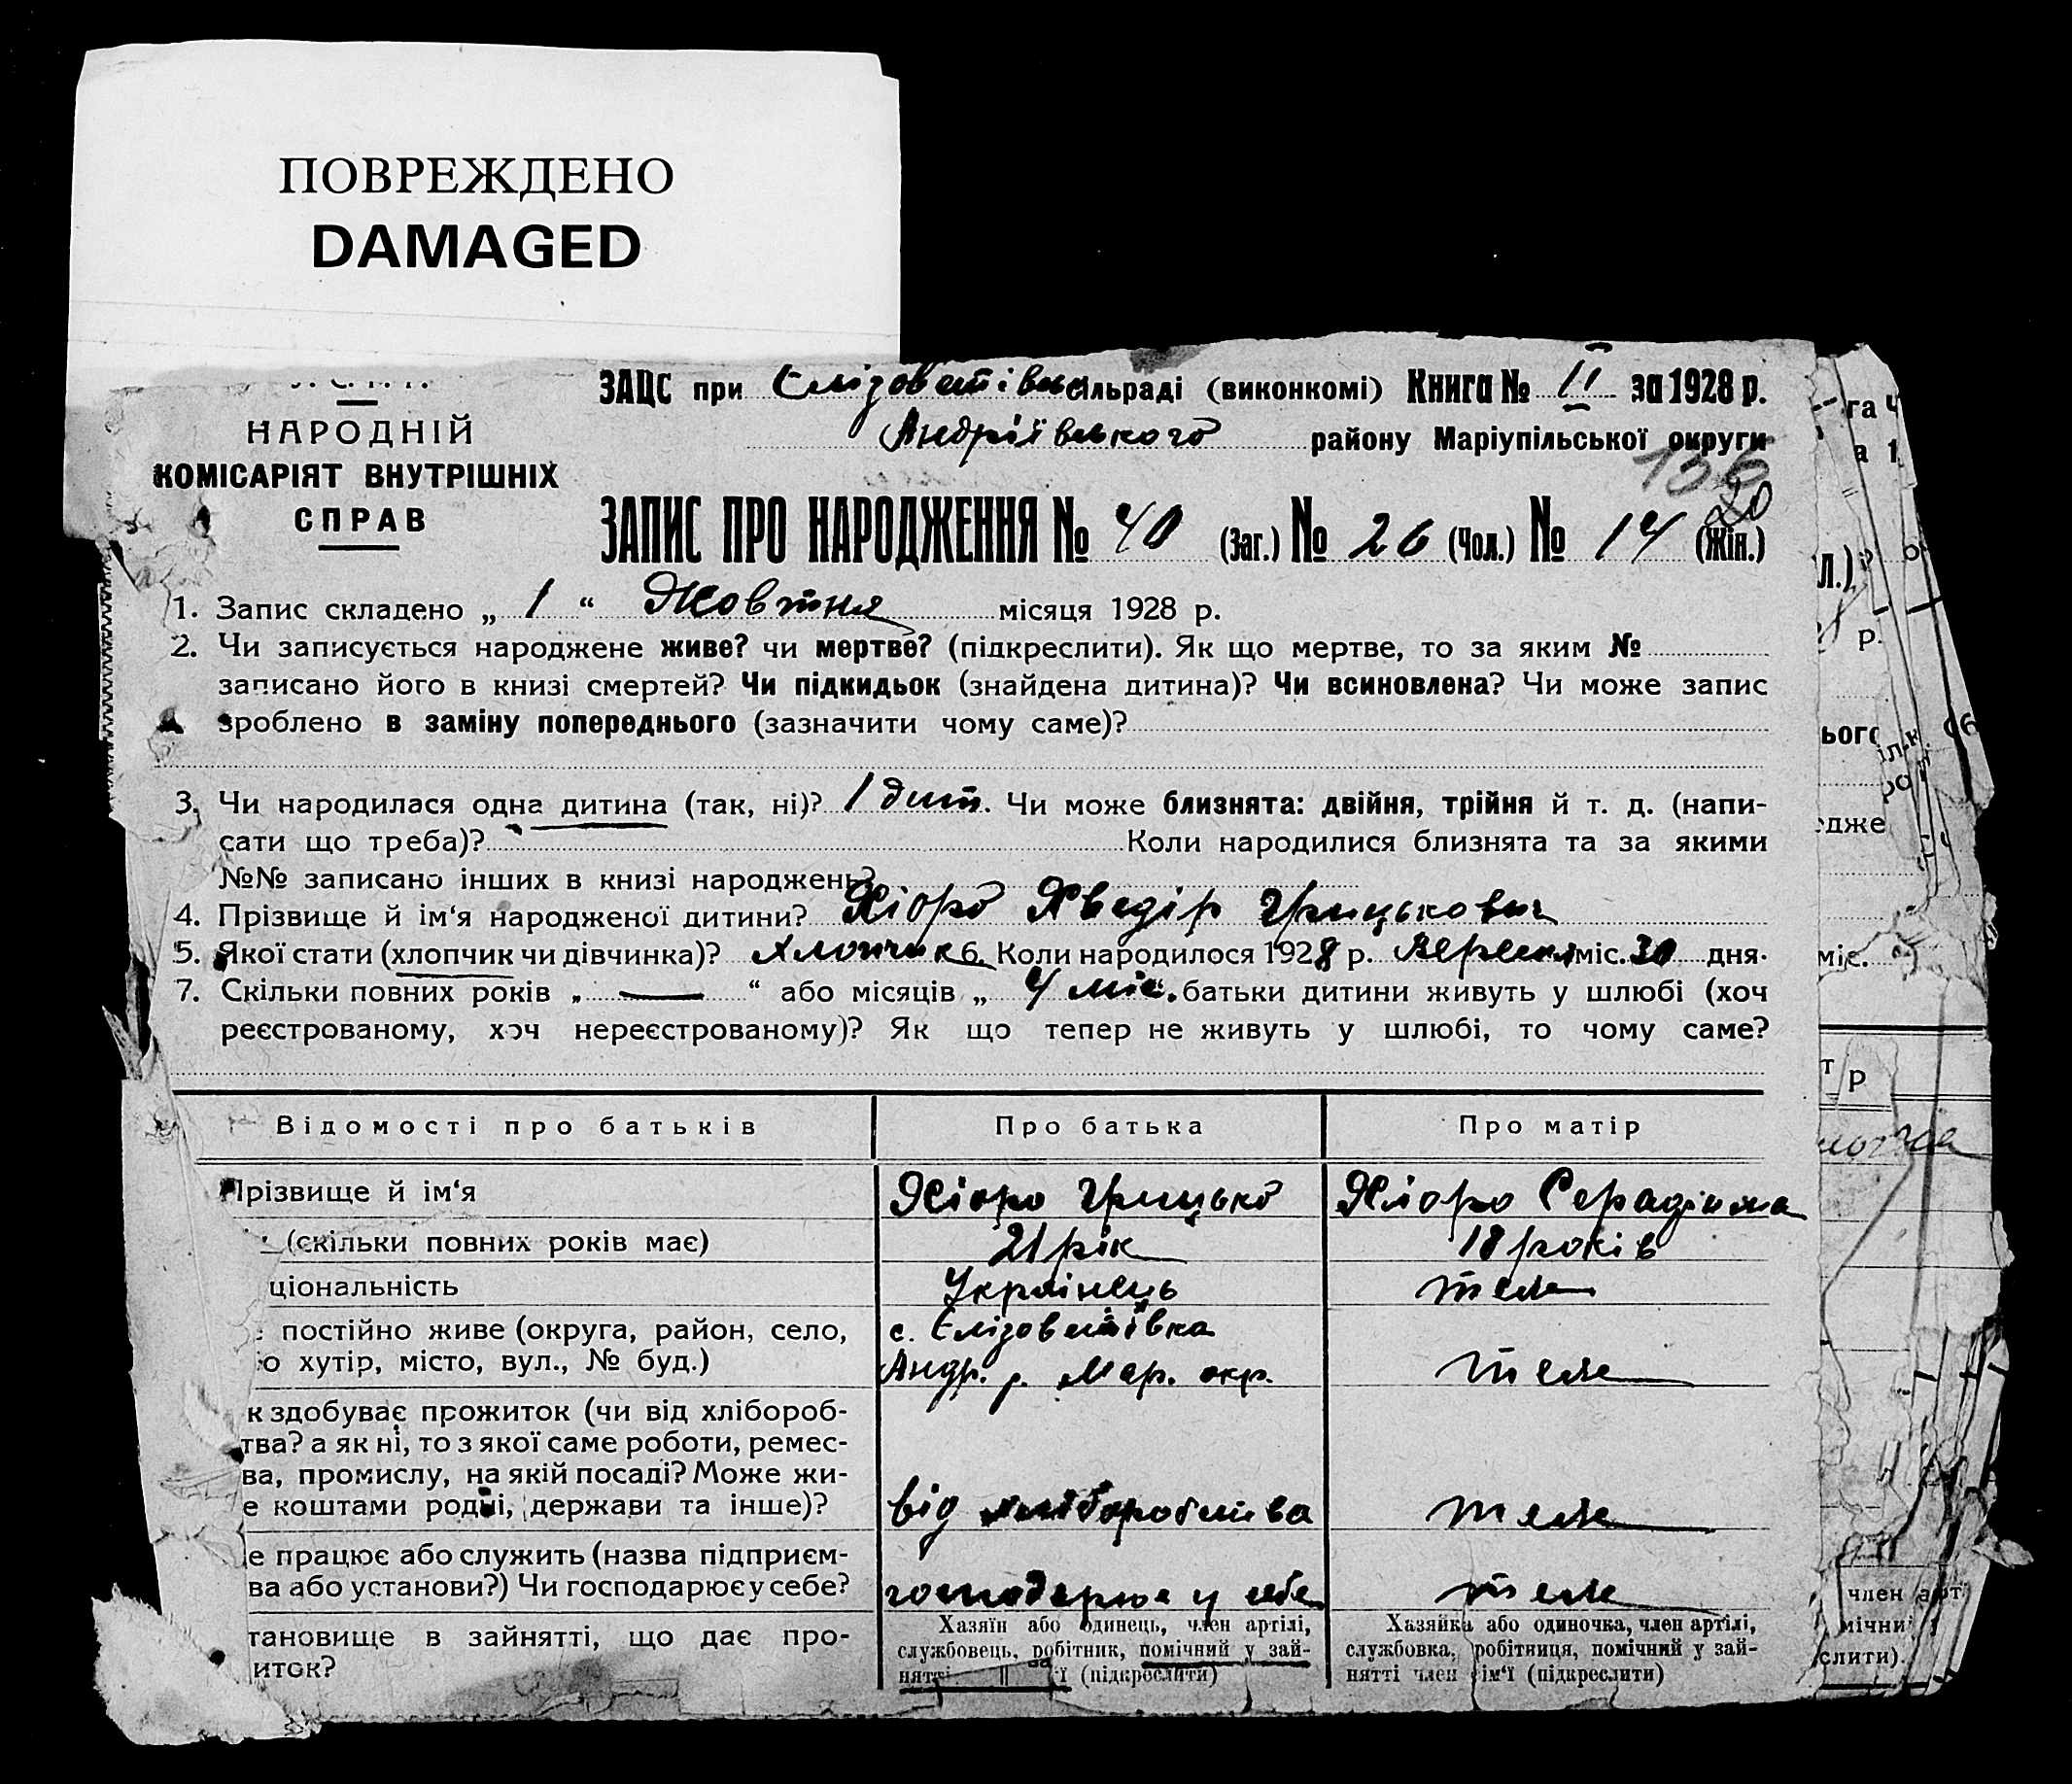 ПОВРЕЖДЕНО
DAMAGED
НАРОДНІЙ
КОМІСАРІЯТ ВНУТРІШНІХ
СПРАВ
ЗАЦС при Єлізоветівськ сільраді (виконкомі) Книга № II за 1928 р.
Андріївського району Маріупільської округи
136
20
ЗАПИС ПРО НАРОДЖЕННЯ № 40 (Заг.) № 26 (Чол.) № 14 (Жін.)
1. Запис складено „ 1 “ Жовтня місяця 1928 р.
2. Чи записується народжене живе? чи мертве? (підкреслити). Як що мертве, то за яким №
записано його в книзі смертей? Чи підкидьок (знайдена дитина)? Чи всиновлена? Чи може запис
зроблено в заміну попереднього (зазначити чому саме)?
3. Чи народилася одна дитина (так, ні)? 1 дит. Чи може близнята: двійня, трійня й т. д. (напи-
сати що треба)? Коли народилися близнята та за якими
№№ записано інших в книзі народжень?
4. Прізвище й ім‘я народженої дитини? Хіоро Хведір Грицькович
5. Якої стати (хлопчик чи дівчинка)? хлопчик 6. Коли народилося 1928 р. Вересня міс. 30 дня.
7. Скільки повних років „ — “ або місяців „ 4 міс. батьки дитини живуть у шлюбі (хоч
реєстрованому, хоч нереєстрованому)? Як що тепер не живуть у шлюбі, то чому саме?
Відомості про батьків Про батька Про матір
Прізвище й ім‘я Хіоро Грицько Хіоро
(скільки повних років має) 21 рік 18 років
ціональність Українець теж
постійно живе (округа, район, село, с. Єлізоветівка
о хутір, місто, вул., № буд.) Андр. р. Мар. окр. теж
к здобуває прожиток (чи від хлібороб-
тва? а як ні, то з якої саме роботи, ремес-
ва, промислу, на якій посаді? Може жи-
е коштами родні, держави та інше)? від хліборобства теж
е працює або служить (назва підприєм-
ва або установи?) Чи господарює у себе? господарює у себе теж
тановище в зайнятті, що дає про-
иток?
Хазяїн або одинець, член артілі,
службовець, робітник, помічний у зай-
нятті (підкреслити)
Хазяйка або одиночка, член артілі,
службовка, робітниця, помічний у зай-
нятті член сім‘ї (підкреслити)